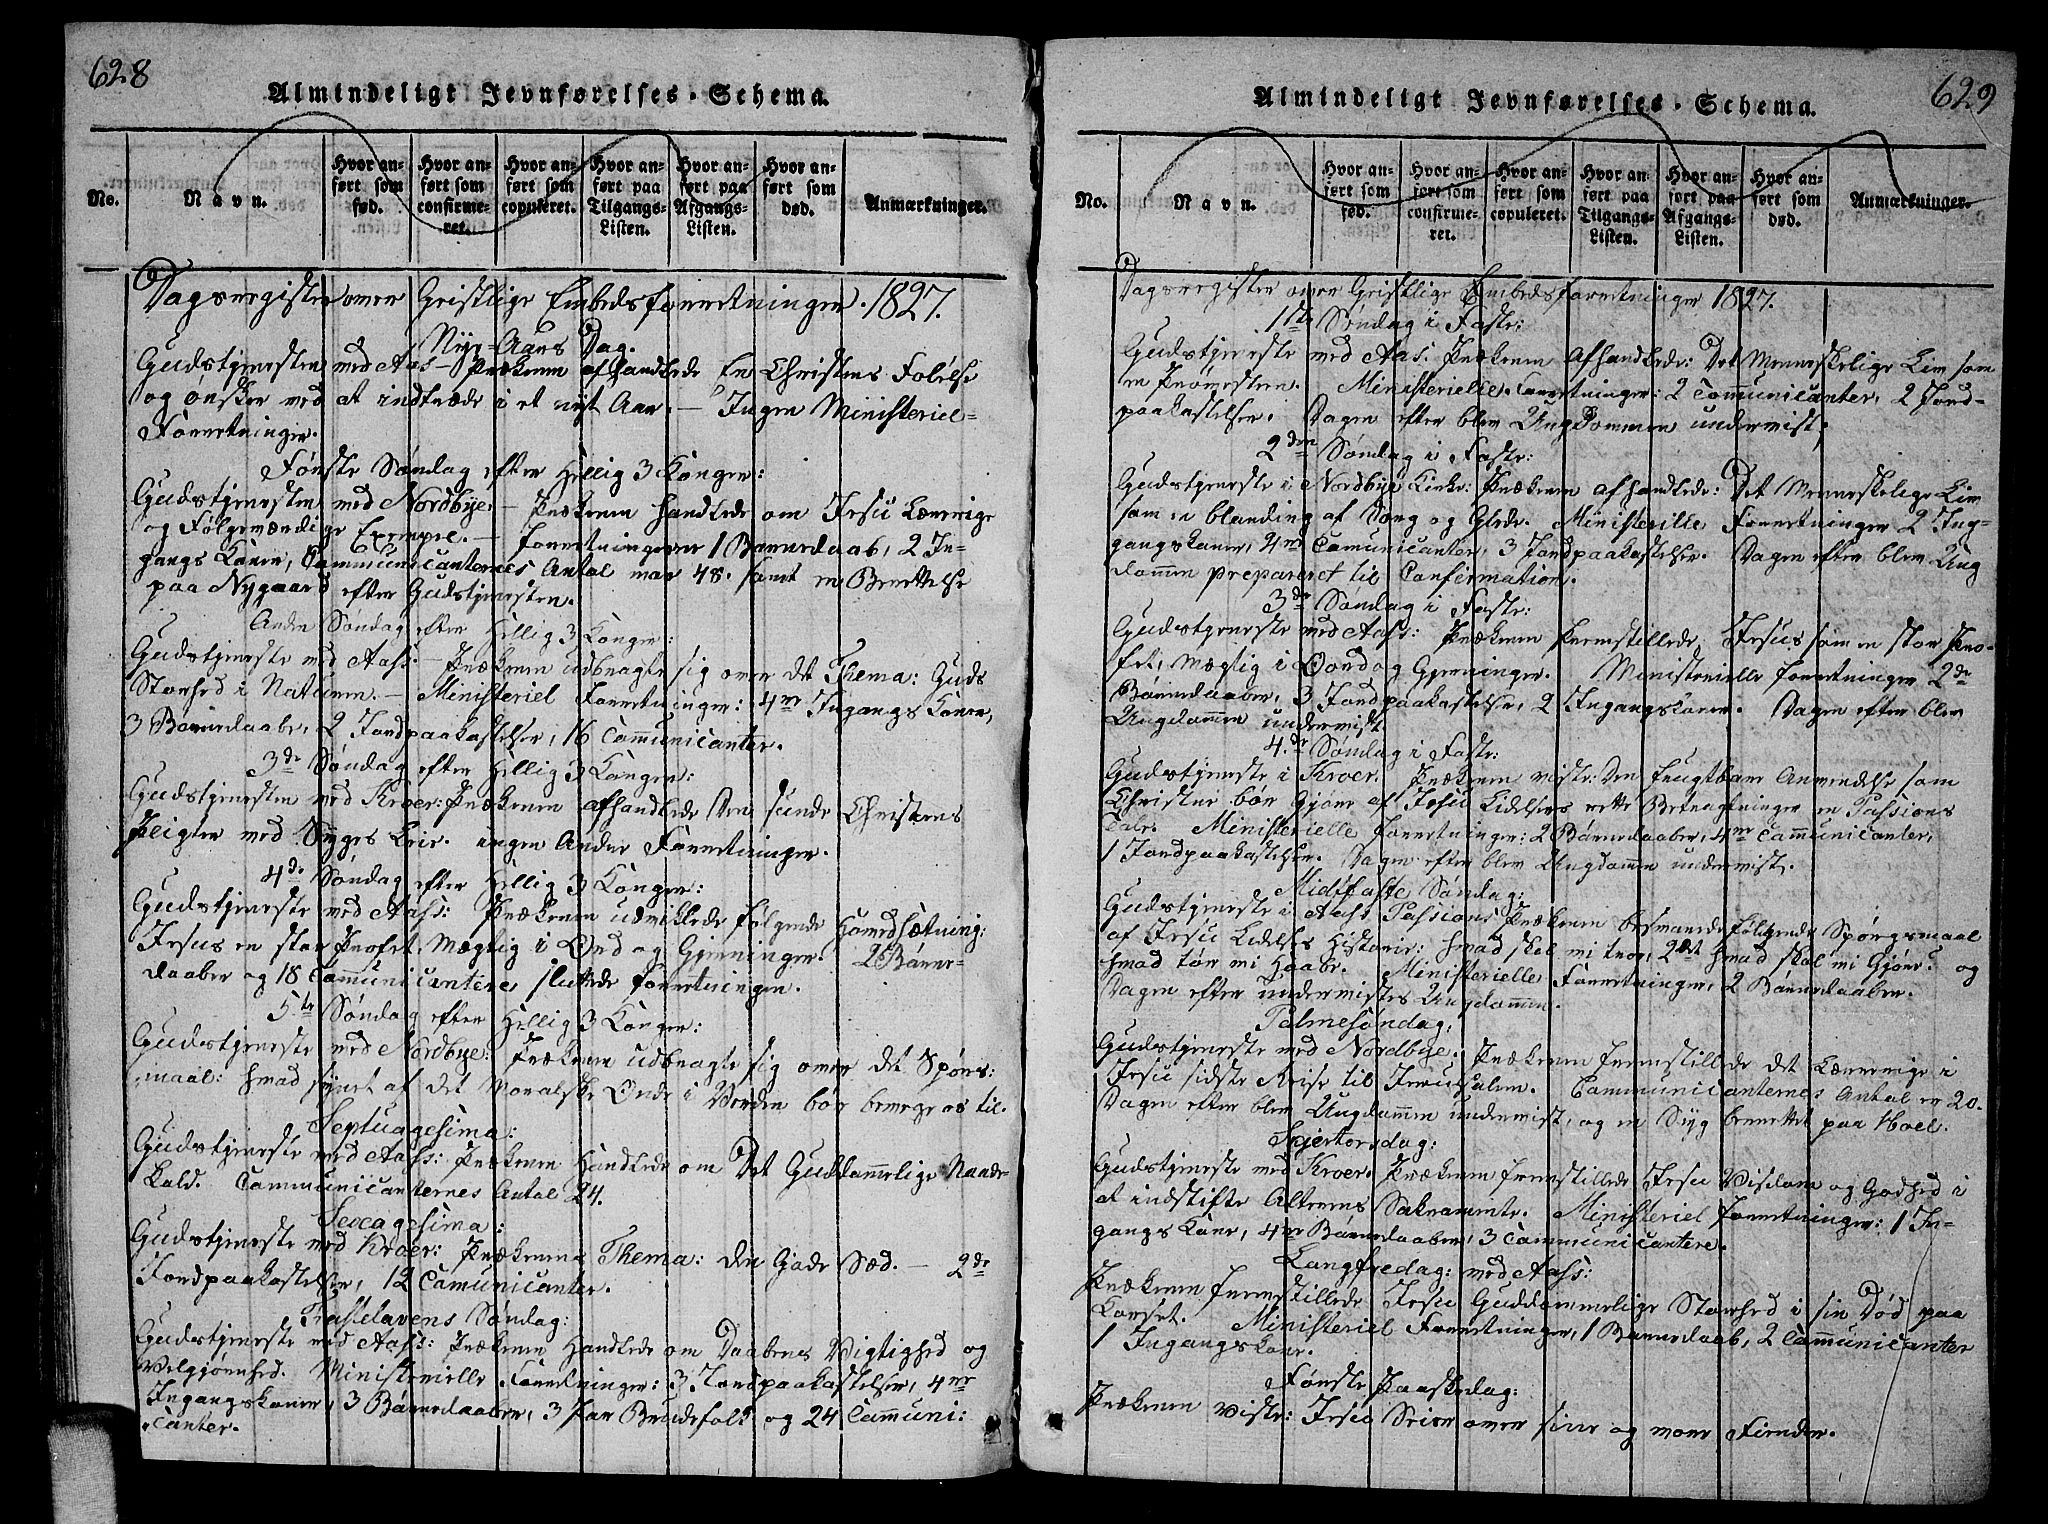 628
Almindeligt Jevnførelses-Schema.
No.
Navn.
Hvor anført som fød.
Hvor anført som confirmeret.
Hvor anført som copuleret.
Hvor anført paa Tilgangs-Listen.
Hvor anført paa Afgangs-Listen.
Hvor anført som død.
Anmærkninger.
Dagsregister over Geistlige Embedsforretninger. 1827.
Nyt-Aars Dag.
Gudstjenesten med Aas - Prækenen afhandlede En Christens Følelse
og ønsker med at indtræde i et nyt Aar. - Ingen Ministeriel-
Forretninger.
Første Søndag efter Hellig 3 Konger:
Gudstjenesten med Nordbye - Prækenen handlede om Jesu Lærerige
og Følgeværdige Exempel. - Forretningerne 1 Barnedaab, 2 In-
gangs Koner, Communicanternes Antal var 48. samt en Berettelse
paa Nygaard efter Gudstjenesten.
Anden Søndag efter Hellig 3 Konger:
Gudstjeneste med Aass. - Prækenen udbragte sig over det Thema: Guds
Storhed i Naturen. - Ministeriel Forretninger: 4re Ingangs Koner,
3 Barnedaabe, 2 Jordpaakastelser, 16 Communicanter.
3de Søndag efter Hellig 3 Konger:
Gudstjenesten med Kroer: Prækenen afhandlede Den sunde Christens
Pligter med Syges Leie. ingen Andre Forretninger.
4de Søndag efter Hellig 3 Konger:
Gudstjeneste med Aass: Prækenen udviklede følgende Hovedsætning:
Jesus en stor Profet, Mægtig i Ord og Gjerninger. 2 Barne-
daaber og 18 Communicantere sluttede forretningen.
5te Søndag efter Hellig 3 Konger:
Gudstjeneste med Nordbye: Prækenen udbragte sig over det Spørs:
maal: hvad synet af det Moralske Onde i Verden bør bevæge os til.
Septuagesima:
Gudstjeneste med Aass: Prækenen Handlede om Det Guddommelige Naade-
Kald. Communicanternes Antal 24.
Sexagesima:
Gudstjeneste med Kroer: Prækenens Thema: den Gode Sæd. - 2de
Jordpaakastelser, 12 Communicanter.
Fastelavens Søndag:
Gudstjeneste med Aass: Prækenen Handlede om Daabens Vigtighed og
Velgjørenhed. Ministerielle Forretninger: 3 Jordpaakastelser, 4re
Ingangskoner, 3 Barnedaaber, 3 Par Brudefolk og 24 Communi:
canter.
629
Almindeligt Jevnførelses-Schema.
No.
Navn.
Hvor anført som fød.
Hvor anført som confirmeret.
Hvor anført som copuleret.
Hvor anført paa Tilgangs-Listen.
Hvor anført paa Afgangs-Listen.
Hvor anført som død.
Anmærkninger.
Dagsregister over Geistlige Embedsforretninger 1827.
1ste Søndag i Faste:
Gudstjeneste med Aas. Prækenen afhandlede: Det Menneskelige Liv som
en Prøvesteen. Ministerielle Forretninger: 2 Communicanter, 2 Jord-
paakastelser. Dagen efter blev Ungdommen underviist;
2den Søndag i Faste:
Gudstjeneste i Nordbye Kirke: Prækenen afhandlede: Det Menneskelige Liv
som en blanding af Sorg og Glede. Ministerielle Forretninger 2 Ing-
gangskoner, 4re Communicanter, 3 Jordpaakastelser. Dagen efter blev Ung
dommen prepareret til Confirmation.
3de Søndag i Faste:
Gudstjeneste med Aass: Prækenen Fremstillede Jesus som en stor Pro-
fet, Mægtig i Ord og Gjerninger. Ministerielle forretninger 2de
Barnedaaber, 3 Jordpaakastelse, 2 Ingangskoner. Dagen efter blev
Ungdommen underviist
4de Søndag i Faste:
Gudstjeneste i Kroer. Prækenen viste: Den frugtbare Anvendelse som
Christne bør Gjøre af Jesu Lidelses rette Betragtninger en Passions
Tale. Ministerielle forretninger: 2 Barnedaaber, 4re Communicanter,
1 Jordpaakastelse. Dagen efter blev Ungdommen underviist.
Midtfaste Søndag:
Gudstjeneste i Aass. Passions Prækenen besvarede følgende Spørgsmaal
af Jesu Lidelses Historie: hvad skal vi troe, 2det hvad skal vi Gjøre? og
hvad tør vi Haabe. Ministerielle Forretninger, 2 Barnedaaber.
Dagen efter undervistes Ungdommen.
Palmesøndag:
Gudstjeneste med Nordbye. Prækenen Fremstillede det Lærerige i
Jesu sidste Reise til Jerusalem. Communicanternes Antal er 20.
Dagen efter blev Ungdommen underviist, og en Syg berettet paa Hoel.
Skjertorsdag:
Gudstjeneste med Kroer. Prækenen fremstillede Jesu Visdom og Godhed i
at indstifte Alterens Sakramente. Ministeriel forretninger: 1 In-
gangs Kone, 4re Barnedaaber, 3 Communicantere.
Langfredag: med Aass:
Prækenen Fremstillede Jesu Guddommelige Storhed i sin Død paa
Korset. Ministeriel Forretninger, 1 Barnedaab, 2 Communicanter
1 Ingangskone.
Første Paaskedag:
Prækenen viste: Jesu Seier over sine og vore Fiender.